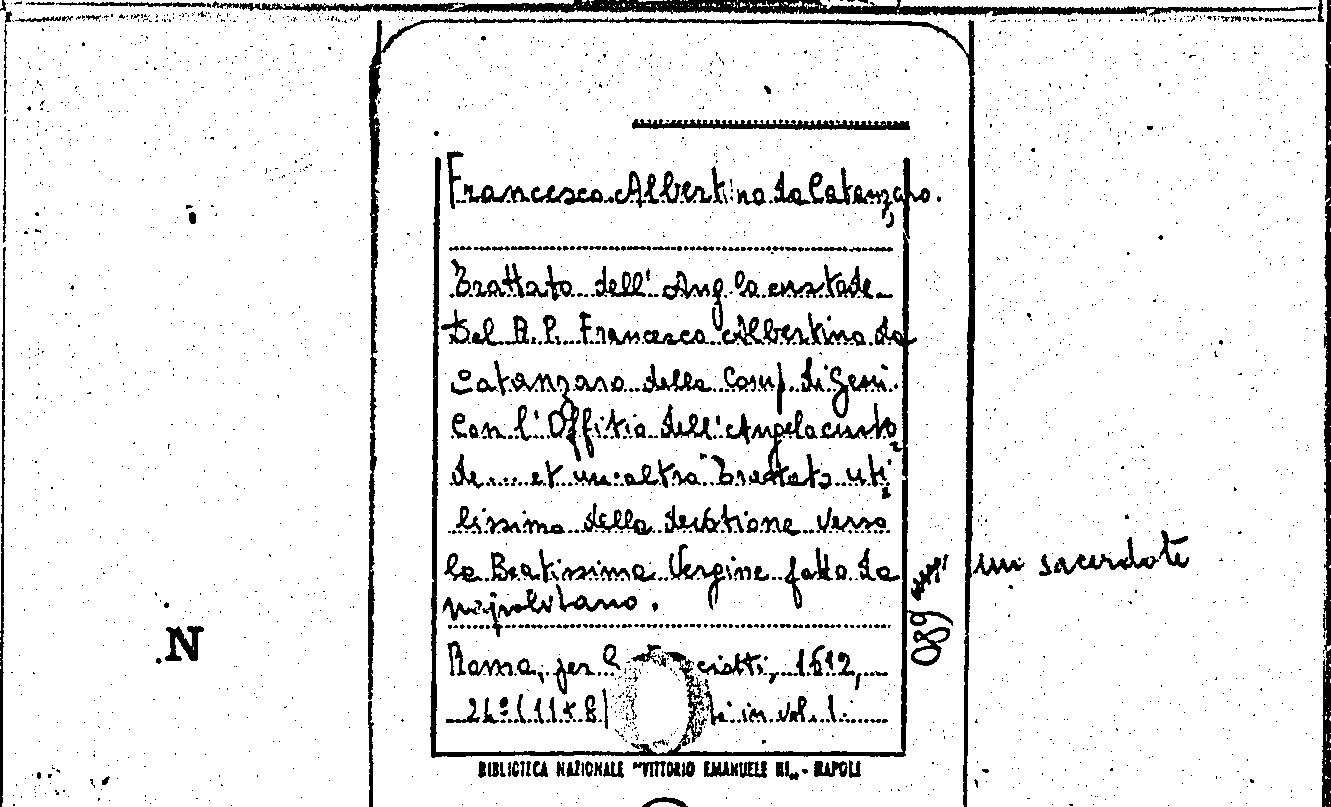 Francesco Albertino da Catanzaro.
Trattato dell' Anglo custode
Del R.P. Francesco Albertino da
Catanzaro della Comp. di Gesù.
Con l'Offitio dell'Angelo custo
de.... et un altro Trattato uti
lissimo della devotione verso
la Beatissima Vergine fatto da
un sacerdote
napolitano.
Roma, per 1612,
24° in vol. 1.
089
N
BIBLIOTECA NAZIONALE "VITTORIO EMANUELE III„ - NAPOLI